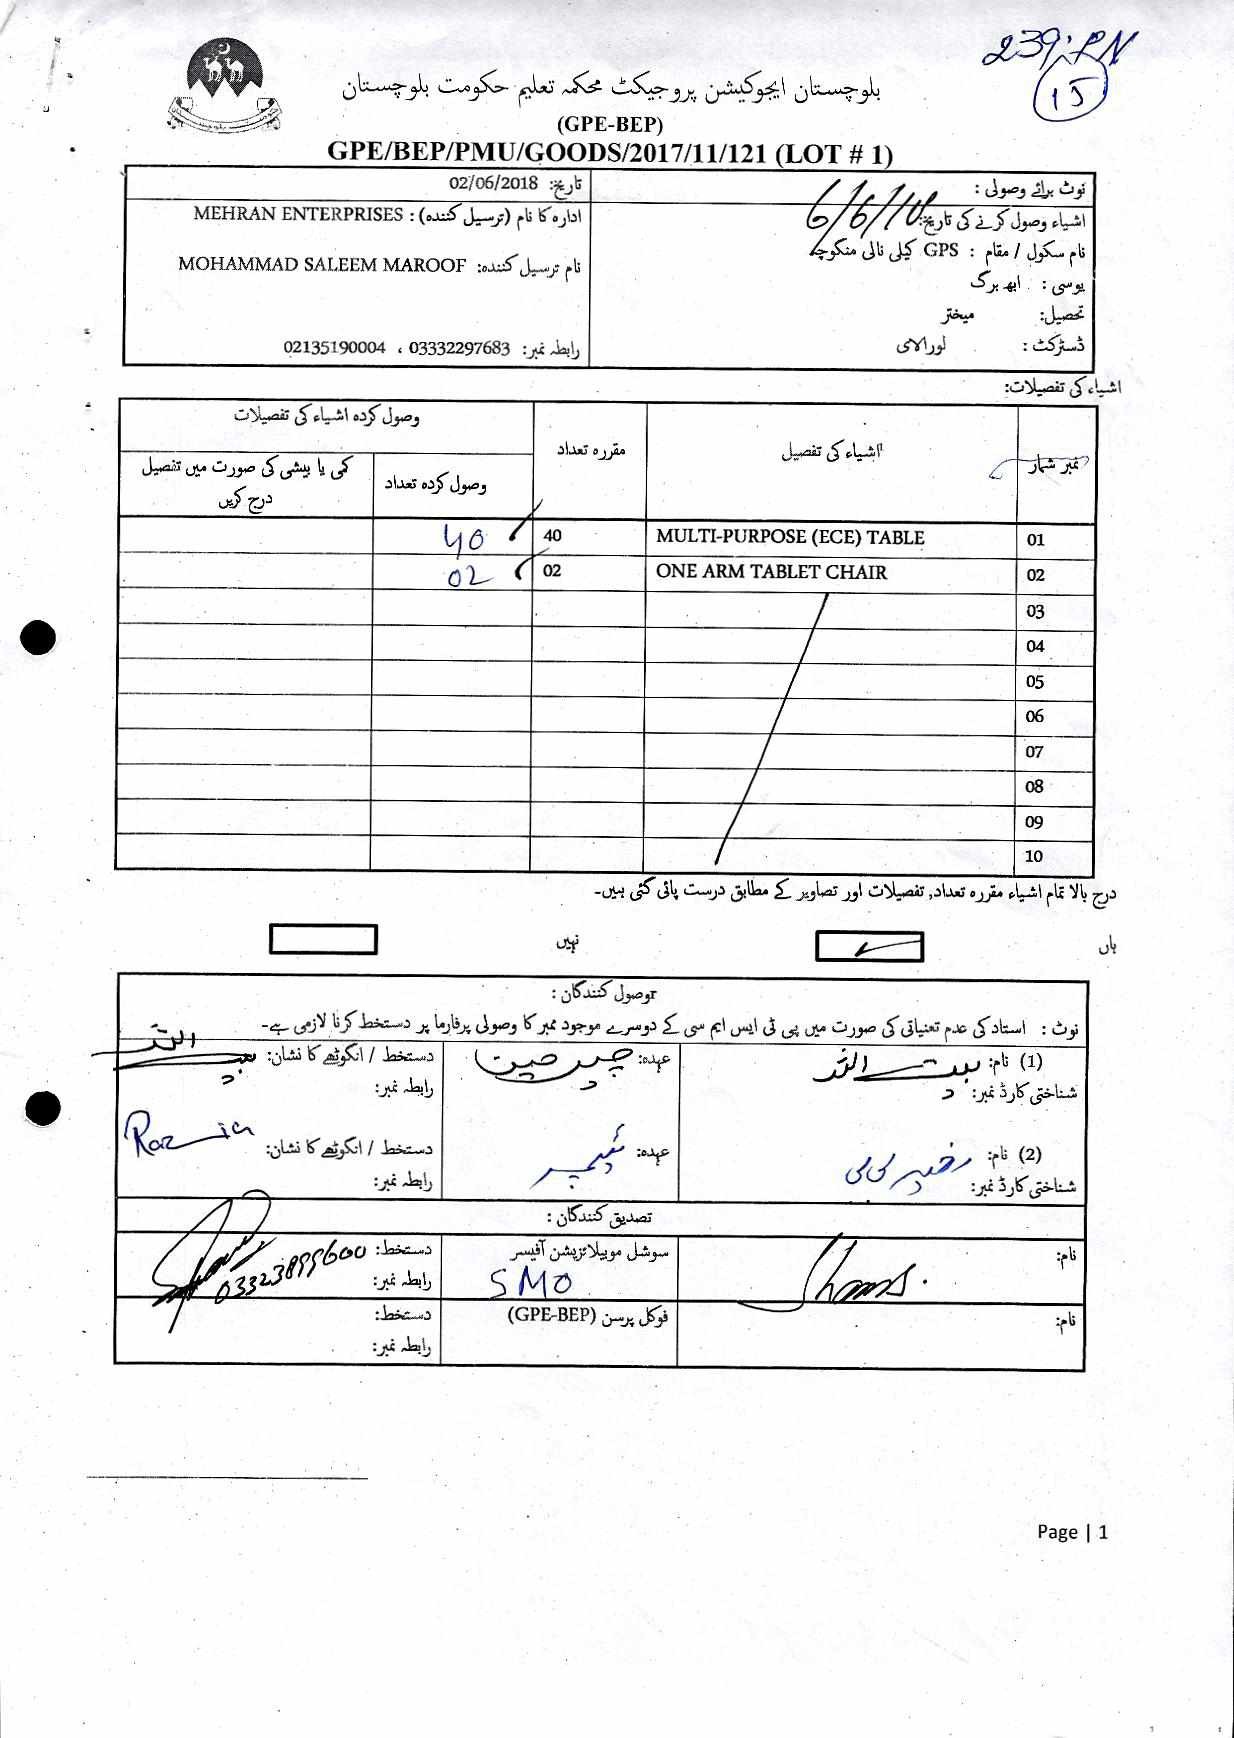 239; PN
15
بلوچستان ایجوکیشن پروجیکٹ محکمہ تعلیم حکومت بلوچستان
(GPE-BEP)
GPE/BEP/PMU/GOODS/2017/11/121 (LOT # 1)
نوٹ برائے وصولی :
اشیاء وصول کرنے کی تاریخ:
نام سکول / مقام : GPS کیلی نالی منگوچہ
یوسی : ابھ برگ
تحصیل: میختر
ڈسٹرکٹ : لورالائی
تاریخ: 02/06/2018
ادارہ کا نام (ترسیل کنندہ) : MEHRAN ENTERPRISES
نام ترسیل کنندہ: MOHAMMAD SALEEM MAROOF
رابطہ نمبر: 03332297683 ، 02135190004
اشیاء کی تفصیلات:
نمبر شمار
اشیاء کی تفصیل
مقررہ تعداد
وصول کردہ اشیاء کی تفصیلات
وصول کردہ تعداد
کمی یا بیشی کی صورت میں تفصیل درج کریں
01 MULTI-PURPOSE (ECE) TABLE 40 40
02 ONE ARM TABLET CHAIR 02 02
03
04
05
06
07
08
09
10
درج بالا تمام اشیاء مقررہ تعداد, تفصیلات اور تصاویر کے مطابق درست پائی گئی ہیں۔
ہاں
نہیں
وصول کنندگان :
نوٹ : استاد کی عدم تعنیاتی کی صورت میں پی ٹی ایس ایم سی کے دوسرے موجود ممبر کا وصولی پرفارما پر دستخط کرنا لازمی ہے۔
(1) نام: عہدہ: دستخط / انگوٹھے کا نشان:
شناختی کارڈ نمبر: رابطہ نمبر:
(2) نام: عہدہ: دستخط / انگوٹھے کا نشان: Razia
شناختی کارڈ نمبر: رابطہ نمبر:
تصدیق کنندگان :
نام: Shams. سوشل موبیلائزیشن آفیسر دستخط:
SMO رابطہ نمبر: 03323899600
نام: فوکل پرسن (GPE-BEP) دستخط:
رابطہ نمبر:
Page | 1